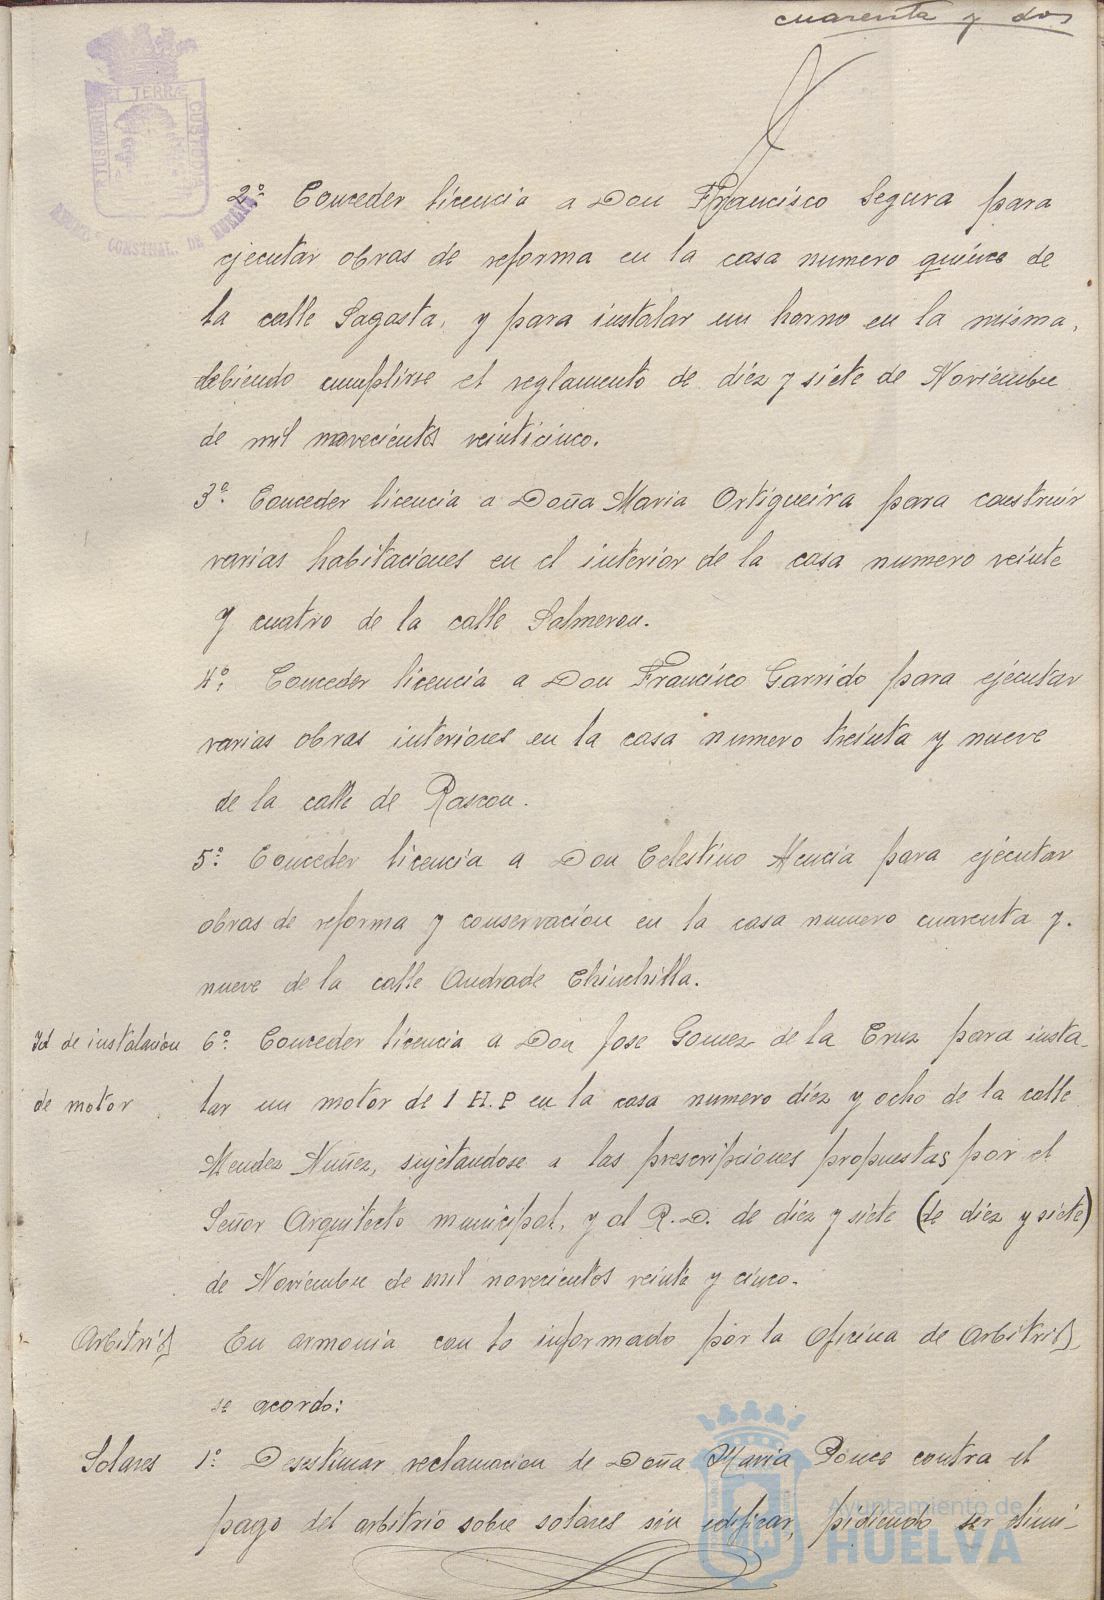 cuarenta y dos
PORTUS MARIS ET TERRÆ CUSTODIA
CONSTNAL. DE HUELVA
2º. Conceder licencia a Don Francisco Segura para
ejecutar obras de reforma en la casa numero quince de
la calle Sagasta, y para instalar un horno en la misma,
debiendo cumplirse el reglamento de diez y siete de Noviembre
de mil novecientos veinticinco.
3º. Conceder licencia a Doña Maria Ortigueira para construir
varias habitaciones en el interior de la casa numero veinte
y cuatro de la calle Salmeron.
4º. Conceder licencia a Don Francisco Garrido para ejecutar
varias obras interiores en la casa numero treinta y nueve
de la calle de Rascon.
5º. Conceder licencia a Don Celestino Atencia para ejecutar
obras de reforma y conservacion en la casa numero cuarenta y
nueve de la calle Andrade Chinchilla.
Id de instalacion
de motor
6º. Conceder licencia a Don Jose Gomez de la Cruz para insta-
lar un motor de 1 H.P en la casa numero diez y ocho de la calle
Mendez Nuñez, sujetandose a las prescripciones propuestas por el
Señor Arquitecto municipal, y al R.D. de diez y siete (de diez y siete)
de Noviembre de mil novecientos veinte y cinco.
Arbitrios
En armonia con lo informado por la Oficina de Arbitrios
se acordo:
Solares
1º. Desestimar reclamacion de Doña Maria Ponce contra el
pago del arbitrio sobre solares sin edificar, pidiendo ser elimi-
Ayuntamiento de
HUELVA